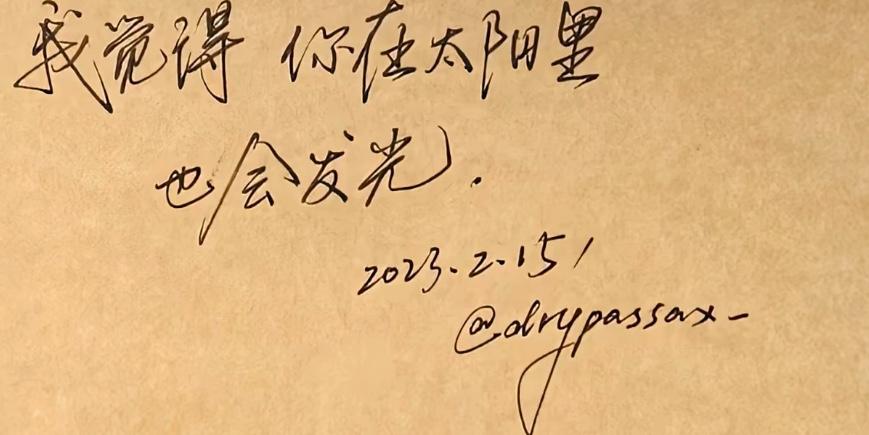 我觉得 你在太阳里
也会发光.
2023.2.15/
@drypassax_